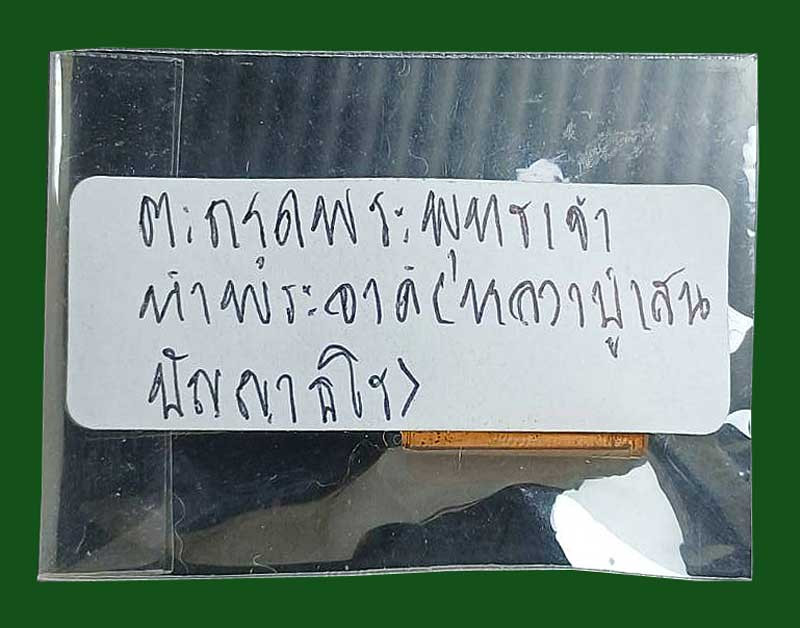 ตะกรุดพระพุทธเจ้า
ห้ามพระอาคิ(หลวงปู่แสน
ปัญญาธโร)